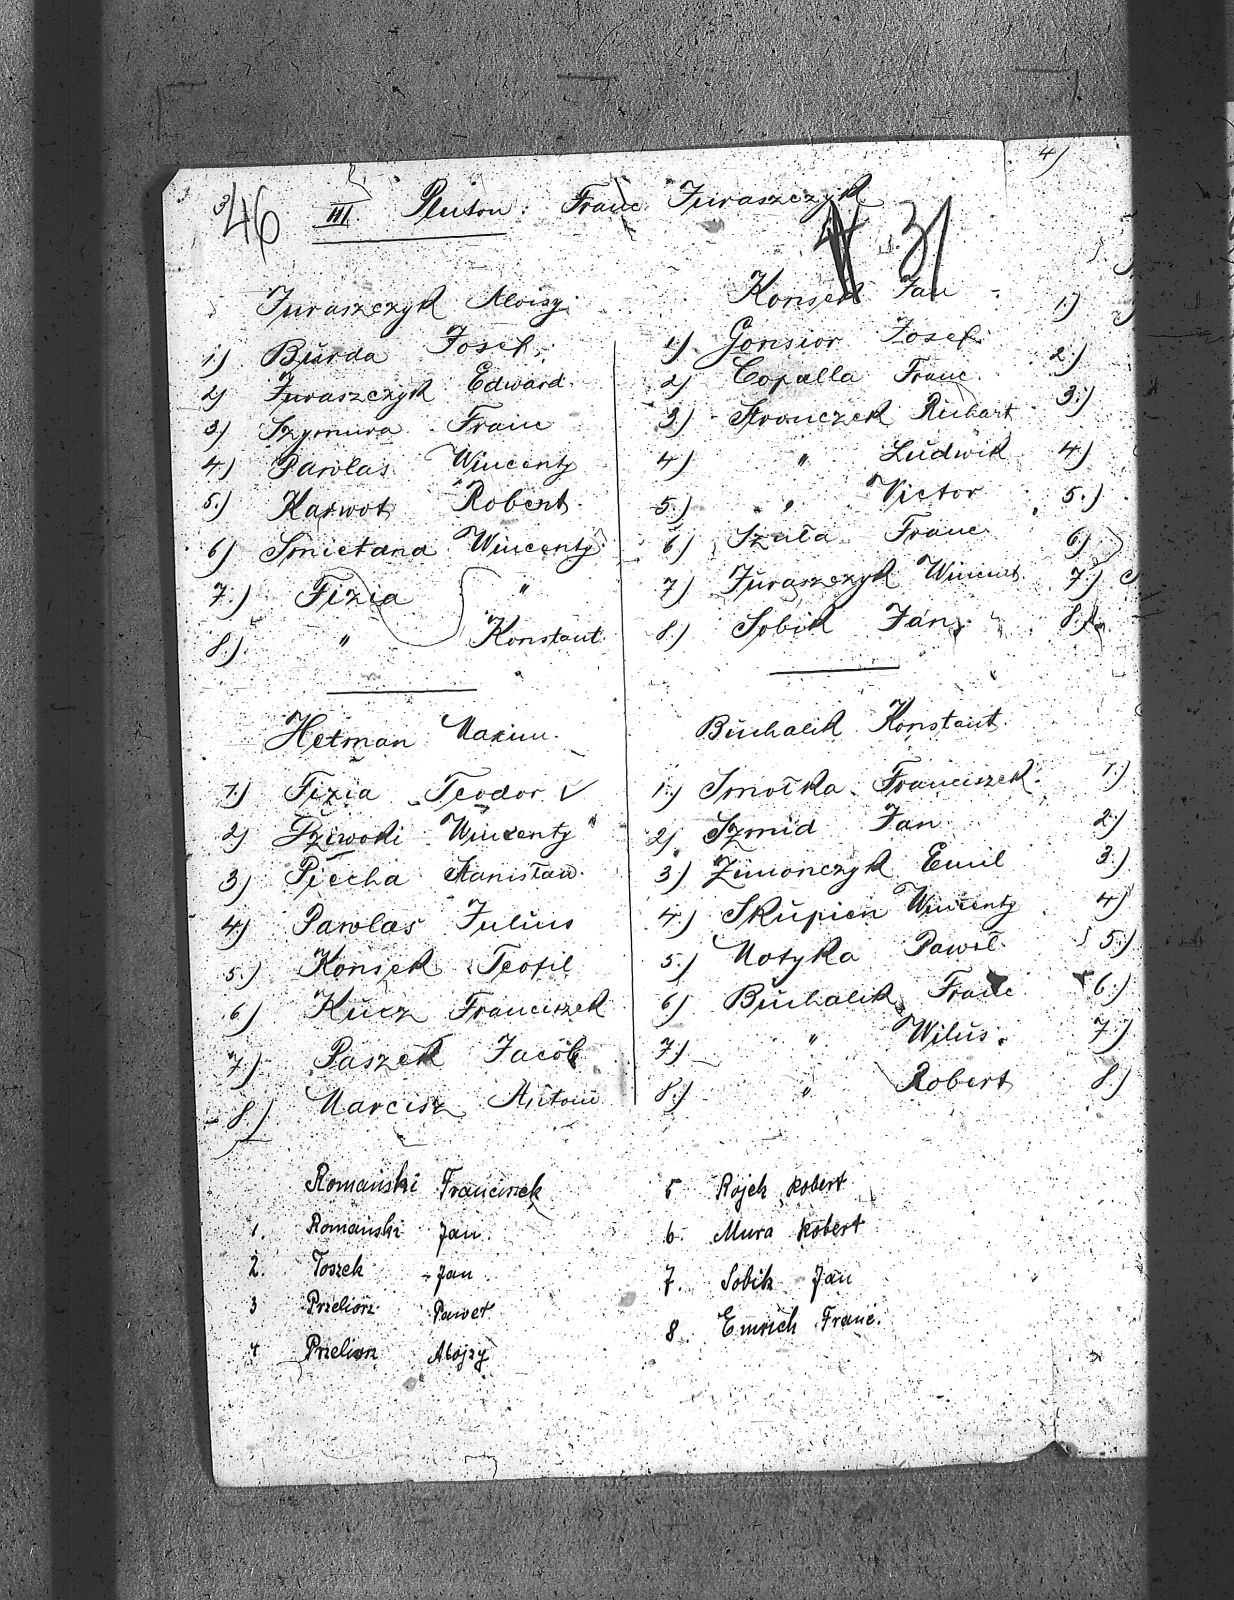 3/
46 III Pluton: Franc Juraszczyk
31
Juraszczyk Aloisy.
1.) Burda Josef.
2) Juraszczyk Edward.
3) Szymura Franc
4) Pawlas Wincenty
5.) Karwot Robert.
6) Smietana Wincenty
7.) Fizia "
8.) " Konstant.
Hetman Maxim.
1.) Fizia Teodor V
2) Wincenty
3) Piecha Stanisław.
4) Pawlas Julius
5.) Konsek Teofil
6) Kucz Franciszek
7.) Paszek Jacob
8.) Marcisz Antoni
Konsek Jan
1.) Gonsior Josef.
2) Copalla Franc.
3.) Stronczek Richart
4) " Ludwik
5.) " Victor
6) Szuła Franc
7) Juraszczyk Wincent.
8.) Sobik Jan.
Buchalik Konstant.
1.) Smołka Franciszek.
2) Szmid Jan
3.) Zimonczyk Emil
4.) Skupien Wincenty
5.) Motyka Paweł
6) Buchalik Franc
7.) " Wilus.
8.) " Robert
Romański Franciszek
1. Romański Jan
2. Toszek - Jan
3 Przeliorz Paweł
4 Przeliorz Alojzy
5 Rojek Robert
6. Mura Robert
7. Sobik Jan
8. Emrich Franc.
4)
1.)
2.)
3.)
4.)
5.)
6)
7.)
8.)
1.)
2.)
3.)
4)
5.)
6.)
7.)
8.)